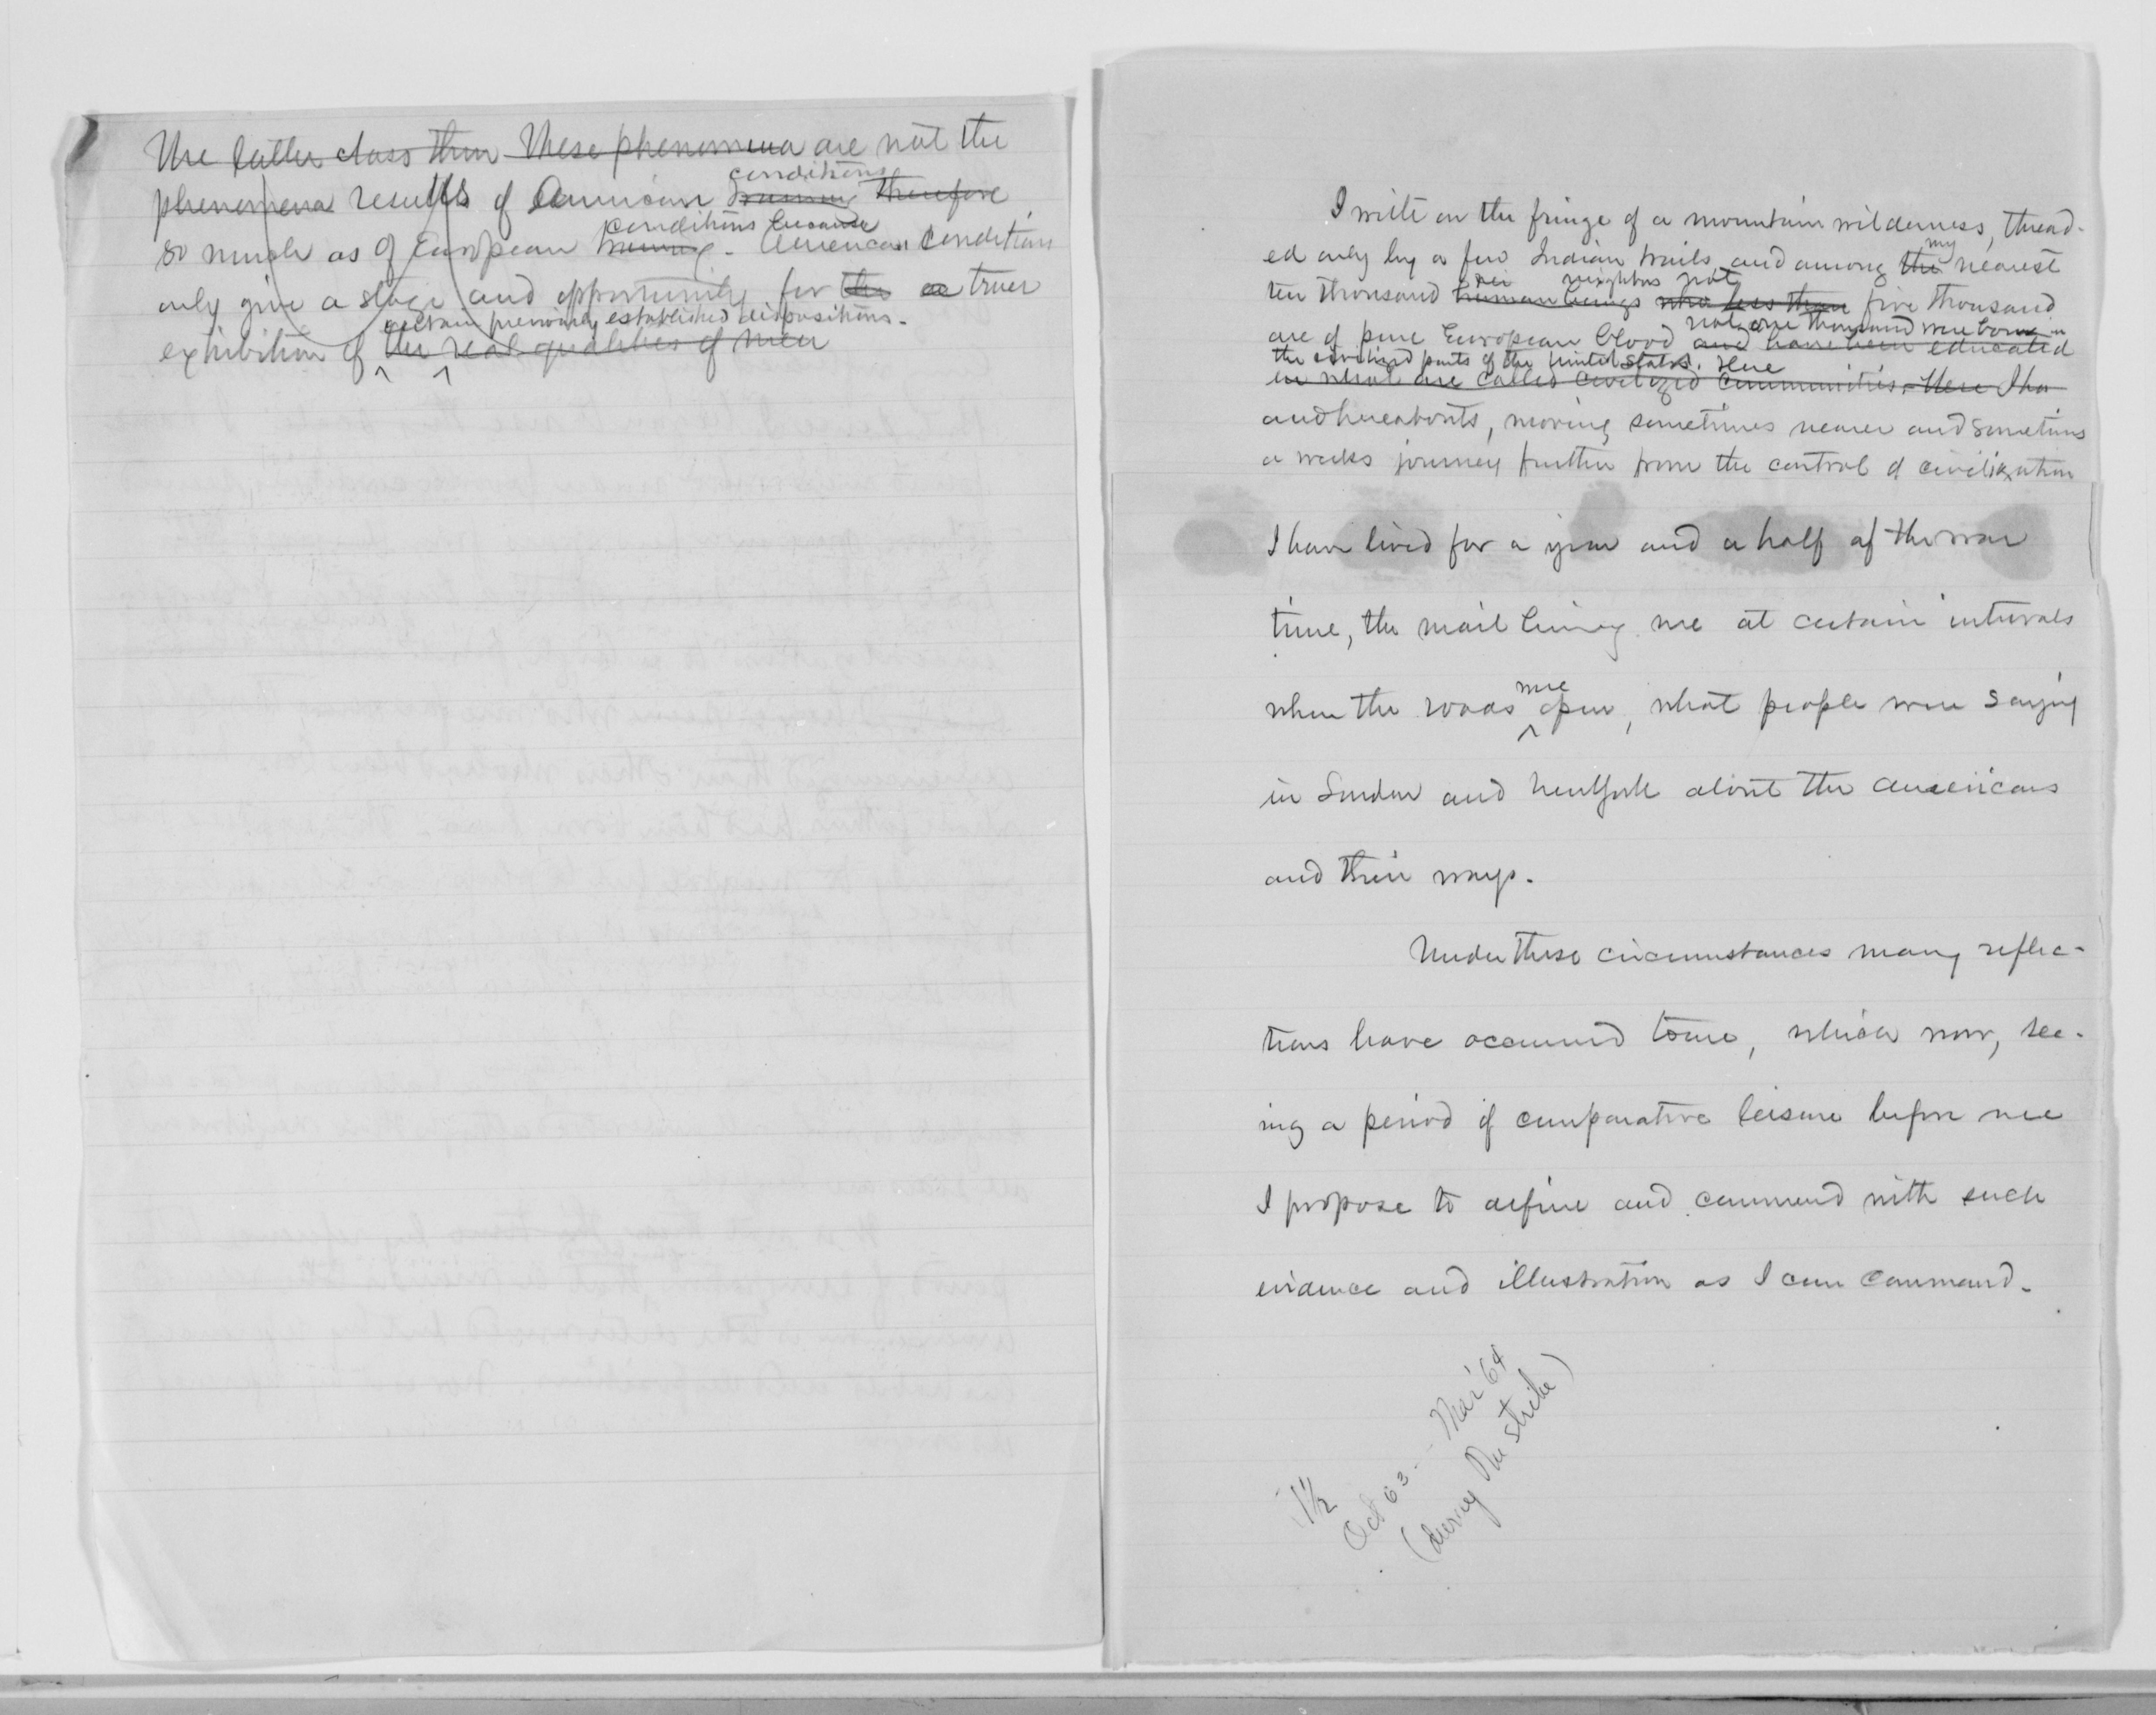 The latter class then These phenomena are not the
conditions
phenomena results of American therefore
conditions because
so much as of European . American conditions
only give a stage and opportunity for the a truer
certain previously established dispositions.
exhibition of the real qualities of men
I write on the fringe of a mountain wilderness, thread-
my
ed only by a few Indian trails and among the nearest
neighbors not
ten thousand human beings who less than five thousand
not one thousand were born in
are of pure European blood and have been educated
the civilized parts of the United States. Here
in what are called civilized communities. Here I ha
and hereabouts, moving sometimes nearer and sometimes
a weeks journey further from the control of civilization
I have lived for a year and a half of the war
time, the mail bring me at certain intervals
were
when the roads open, what people were saying
in London and New York about the Americans
and their ways.
Under these circumstances many reflec-
tions have occurred to me, which now, see-
ing a period of comparative leisure before me
I propose to define and commend with such
evidence and illustration as I can command.
1½
Oct 63 - Mar '64
(during the strike)